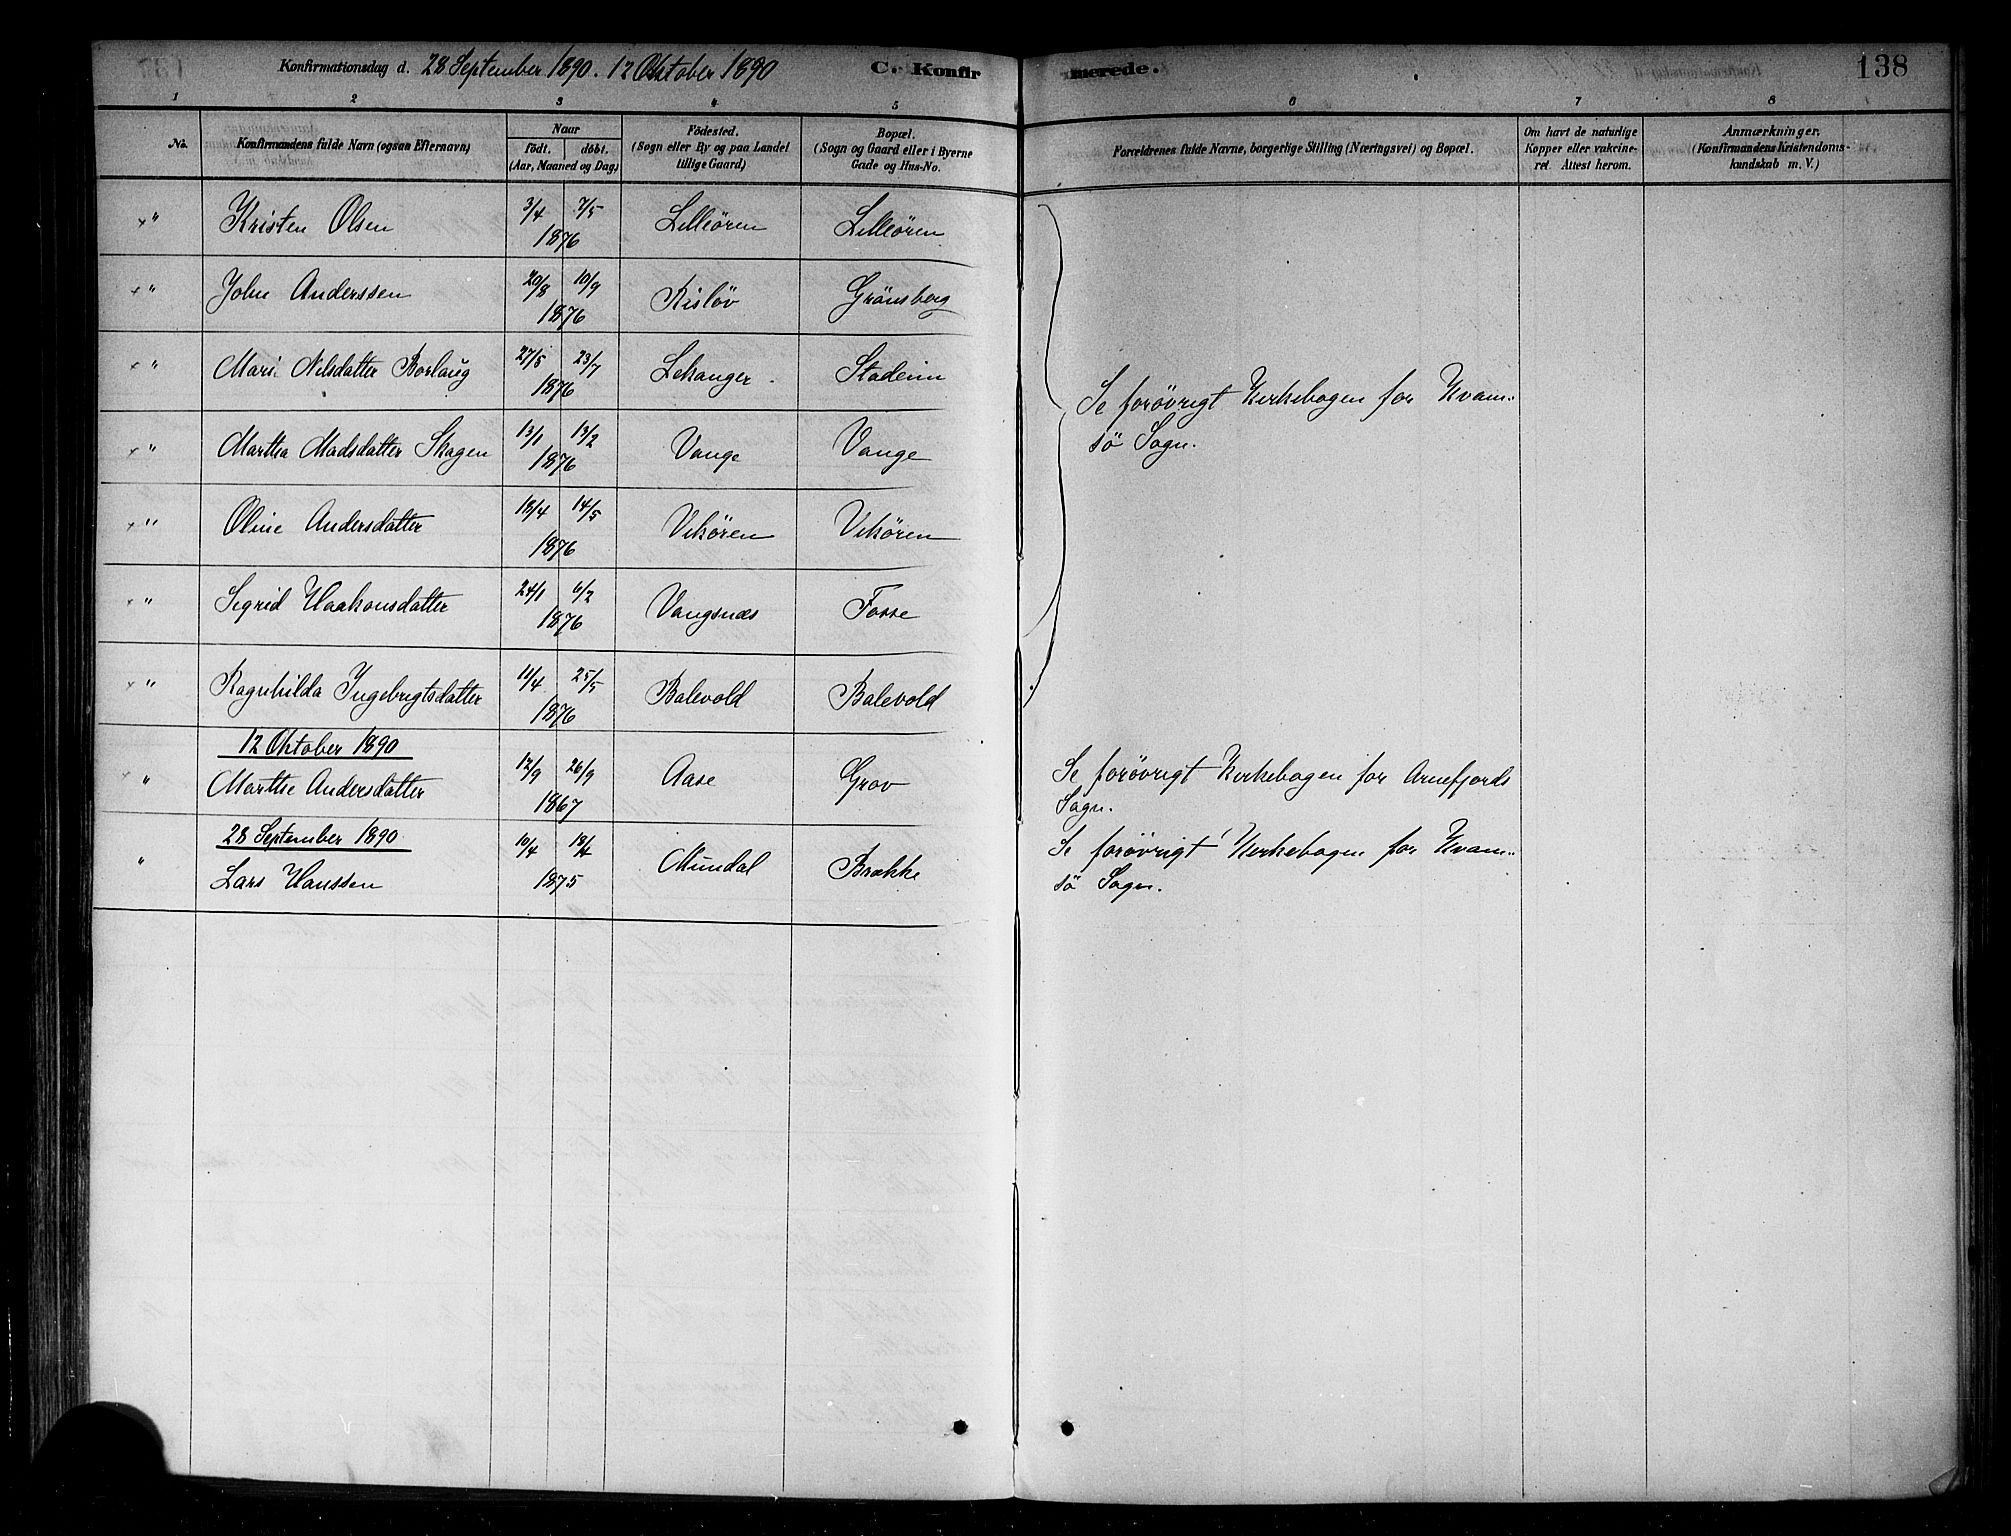 Konfirmationsdag d. 28 September 1890. 12 Oktober 1890 C. Konfirmerede. 138
1 2 3 4 5 6 7 8
No. Konfirmandens fulde Navn (ogsaa Efternavn) Naar født. døbt. (Aar, Maaned og Dag) Fødested. (Sogn eller By og paa Landet tillige Gaard) Bopæl. (Sogn og Gaard eller i Byerne Gade og Hus-No. Forældrenes fulde Navne, borgerlige Stilling (Næringsvei) og Bopæl. Om havt de naturlige Kopper eller vakcineret. Attest herom. Anmærkninger. (Konfirmandens Kristendomskundskab m. V.)
" Kristen Olsen 3/4 7/5 1876 Lilleören Lilleören
" John Anderssen 20/8 10/9 1876 Risløv Grönsberg
" Mari Nilsdatter Borlaug 27/5 23/7 1876 Lekanger Stadeim
" Martha Madsdatter Skagen 13/1 13/2 1876 Vange Vange
Se forøvrigt Kirkebogen for Kvam-
sö Sogn.
" Oline Andersdatter 18/4 14/5 1876 Vikören Vikören
" Sigrid Haakonsdatter 24/1 6/2 1876 Vangsnæs Fosse
" Ragnhilda Ingebrigtsdatter 11/4 25/5 1876 Balevold Balevold
12 Oktober 1890
" Marthe Andersdatter 12/9 26/9 1867 Aase Grov Se forøvrigt Kirkebogen for Arnefjords
Sogn.
28 September 1890
" Lars Hanssen 10/4 18/4 1875 Mundal Brække Se forøvrigt Kirkebogen for Kvam-
sö Sogn.